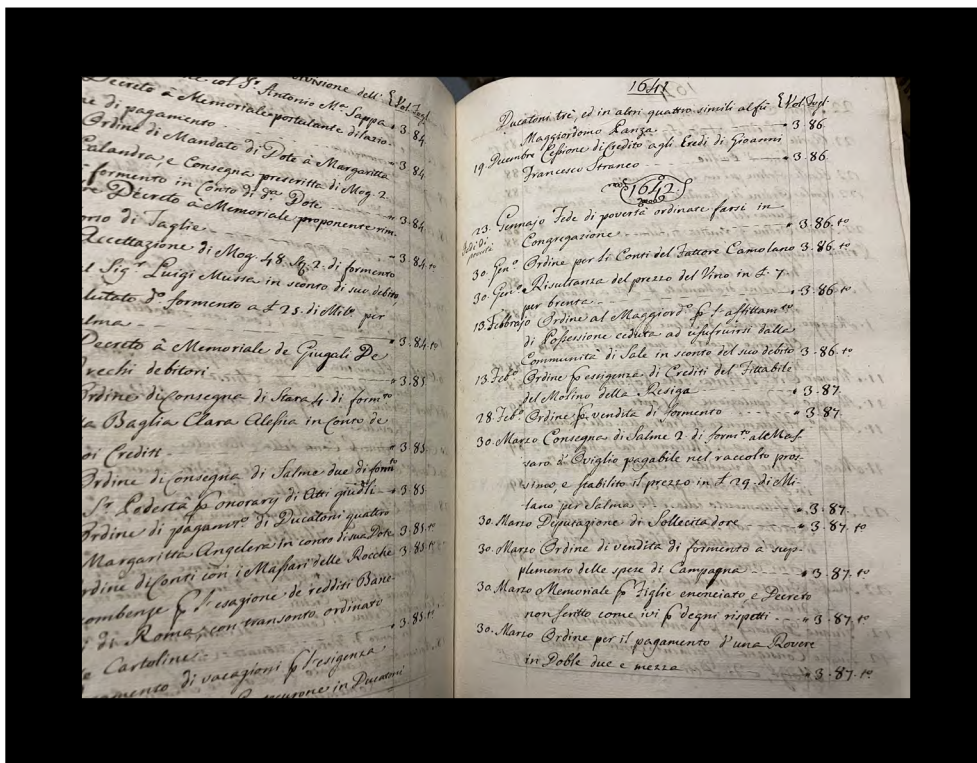 unione dell' Vol. Fogl.
col Sr. Antonio Ma. Sappa " 3. 84
Decreto à Memoriale portulante dilazio-
ne di pagamento
Ordine di Mandato di Dote à Margaritta " 3. 84
Calandra, e Consegna prescritta di Mog. 2.
formento in Conto di da. Dote " 3. 84
Decreto à Memoriale proponente rim-
orso di Taglie " 3. 84. to
Accettazione di Mog. 48. 2. di formento
l Sigr. Luigi Mussa in sconto di suo debito
lutato do. formento a £ 25. di Milo. per
alma " 3. 84. to
Decreto à Memoriale de Giugali De
vecchi debitori " 3. 85
Ordine di Consegna di Stara 4. di formto
a Baglia Clara Alessia in Conto de
oi Crediti " 3. 85
Ordine di Consegna di Salme due di formto
Sr. Podestà per onorarij di Atti giudli " 3. 85
Ordine di pagamto. di Ducatoni quattro
Margaritta Angelera in conto di sua Dote 3. 85. to
rdine di Conti con i Massari delle Rocche 3. 85. to
ombenze per l'esazione de redditi Bane-
di Roma, con transonto, ordinato
Cartoline " 3. 85. to
amento di vacazioni per l'esigenza
in Ducatoni
1641
Ducatoni trè, ed in altri quattro simili al fù Vol. Fogl.
Maggiordomo Ranza " 3. 86
19. Dicembre Cessione di Credito agli Eredi di Gioanni
Francesco Straneo " 3. 86
1642.
23. Gennajo Fede di povertà ordinate farsi in
Fede di povertà
Congregazione " 3. 86. to
30. Geno. Ordine per li Conti del Fattore Camolano 3. 86. to
30. Geno. Risultanza del prezzo del Vino in £ 7
per brenta " 3. 86 to
13. Febbrajo Ordine al Maggiordo. per l'affittamto
di Possessione ceduta ad usufruirsi dalla
Communità di Sale in sconto del suo debito 3. 86. to
13. Febo. Ordine per esigenza di Crediti del Fittabile
del Molino della Resiga " 3. 87
28. Febo. Ordine per vendita di formento " 3. 87.
30. Marzo Consegna di Salme 2. di formto. al Mas-
saro d'Oviglio pagabile nel raccolto pros-
simo, e stabilito il prezzo in £ 29. di Mi-
lano per Salma " 3. 87.
30. Marzo Deputazione di Sollecitadore " 3. 87. to
30. Marzo Ordine di vendita di formento a sup-
plemento delle spese di Campagna " 3. 87. to
30. Marzo Memoriale per Figlie enonciato e Decreto
non scritto come ivi per degni rispetti " 3. 87. to
30. Marzo Ordine per il pagamento d'una Rovere
in Doble due e mezza " 3. 87. to